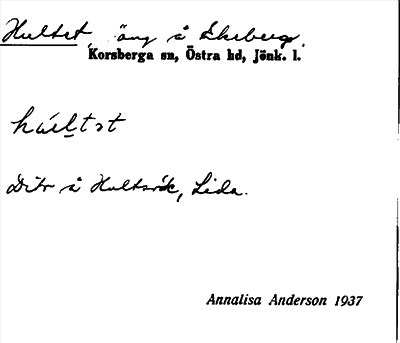 Hultet, äng å Ekeberg.
Korsberga sn, Östra hd, Jönk. l.
Ditr å Hultsvik, Lida.
Annalisa Anderson 1937